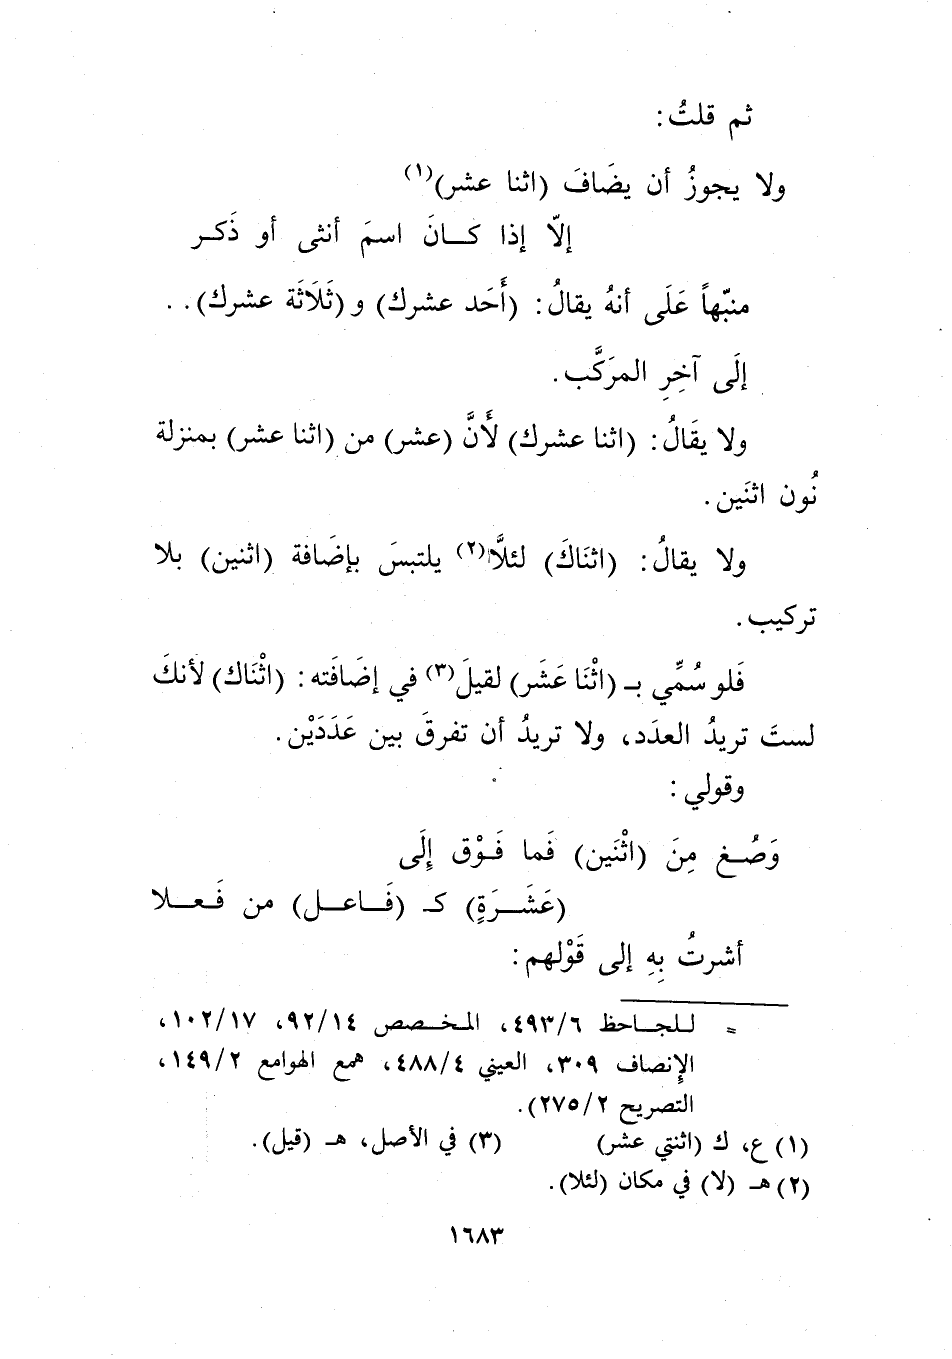 ثم قلتُ:
ولا يجوزُ أن يضَافَ (اثنا عشر)(١)
إلّا إذا كـــانَ اسمَ أنثى أو ذَكــر
منبّهاً عَلَى أنهُ يقالُ: (أَحَد عشرك) و(ثَلَاثَة عشرك). .
إلَى آخِرِ المرَكَّب.
ولا يقَالُ: (اثنا عشرك) لأَنَّ (عشر) من (اثنا عشر) بمنزلة
نُون اثنَين.
ولا يقالُ: (اثنَاكَ) لئلَّا(٢) يلتبسَ بإضَافة (اثنين) بلا
تركيب.
فَلو سُمِّي بـ (اثْنَا عَشَر) لقيلَ(٣) في إضَافَته: (اثْنَاك) لأنكَ
لستَ تريدُ العدَد، ولا تريدُ أن تفرقَ بين عَدَدَيْن.
وقولي:
وَصُــغ مِنَ (اثْنَين) فَما فَـوْق إلَى
(عَشَــرَةٍ) كـ (فَـاعـل) من فَـعــلا
أشرتُ بِهِ إلى قَوْلهم:
= للجاحظ ٤٩٣/٦، المخصص ٩٢/١٤، ١٠٢/١٧،
الإنصاف ٣٠٩، العيني ٤٨٨/٤، همع الهوامع ١٤٩/٢،
التصريح ٢٧٥/٢).
(١) ع، ك (اثنتي عشر) (٣) في الأصل، هـ (قيل).
(٢) هـ (لا) في مكان (لئلا).
١٦٨٣